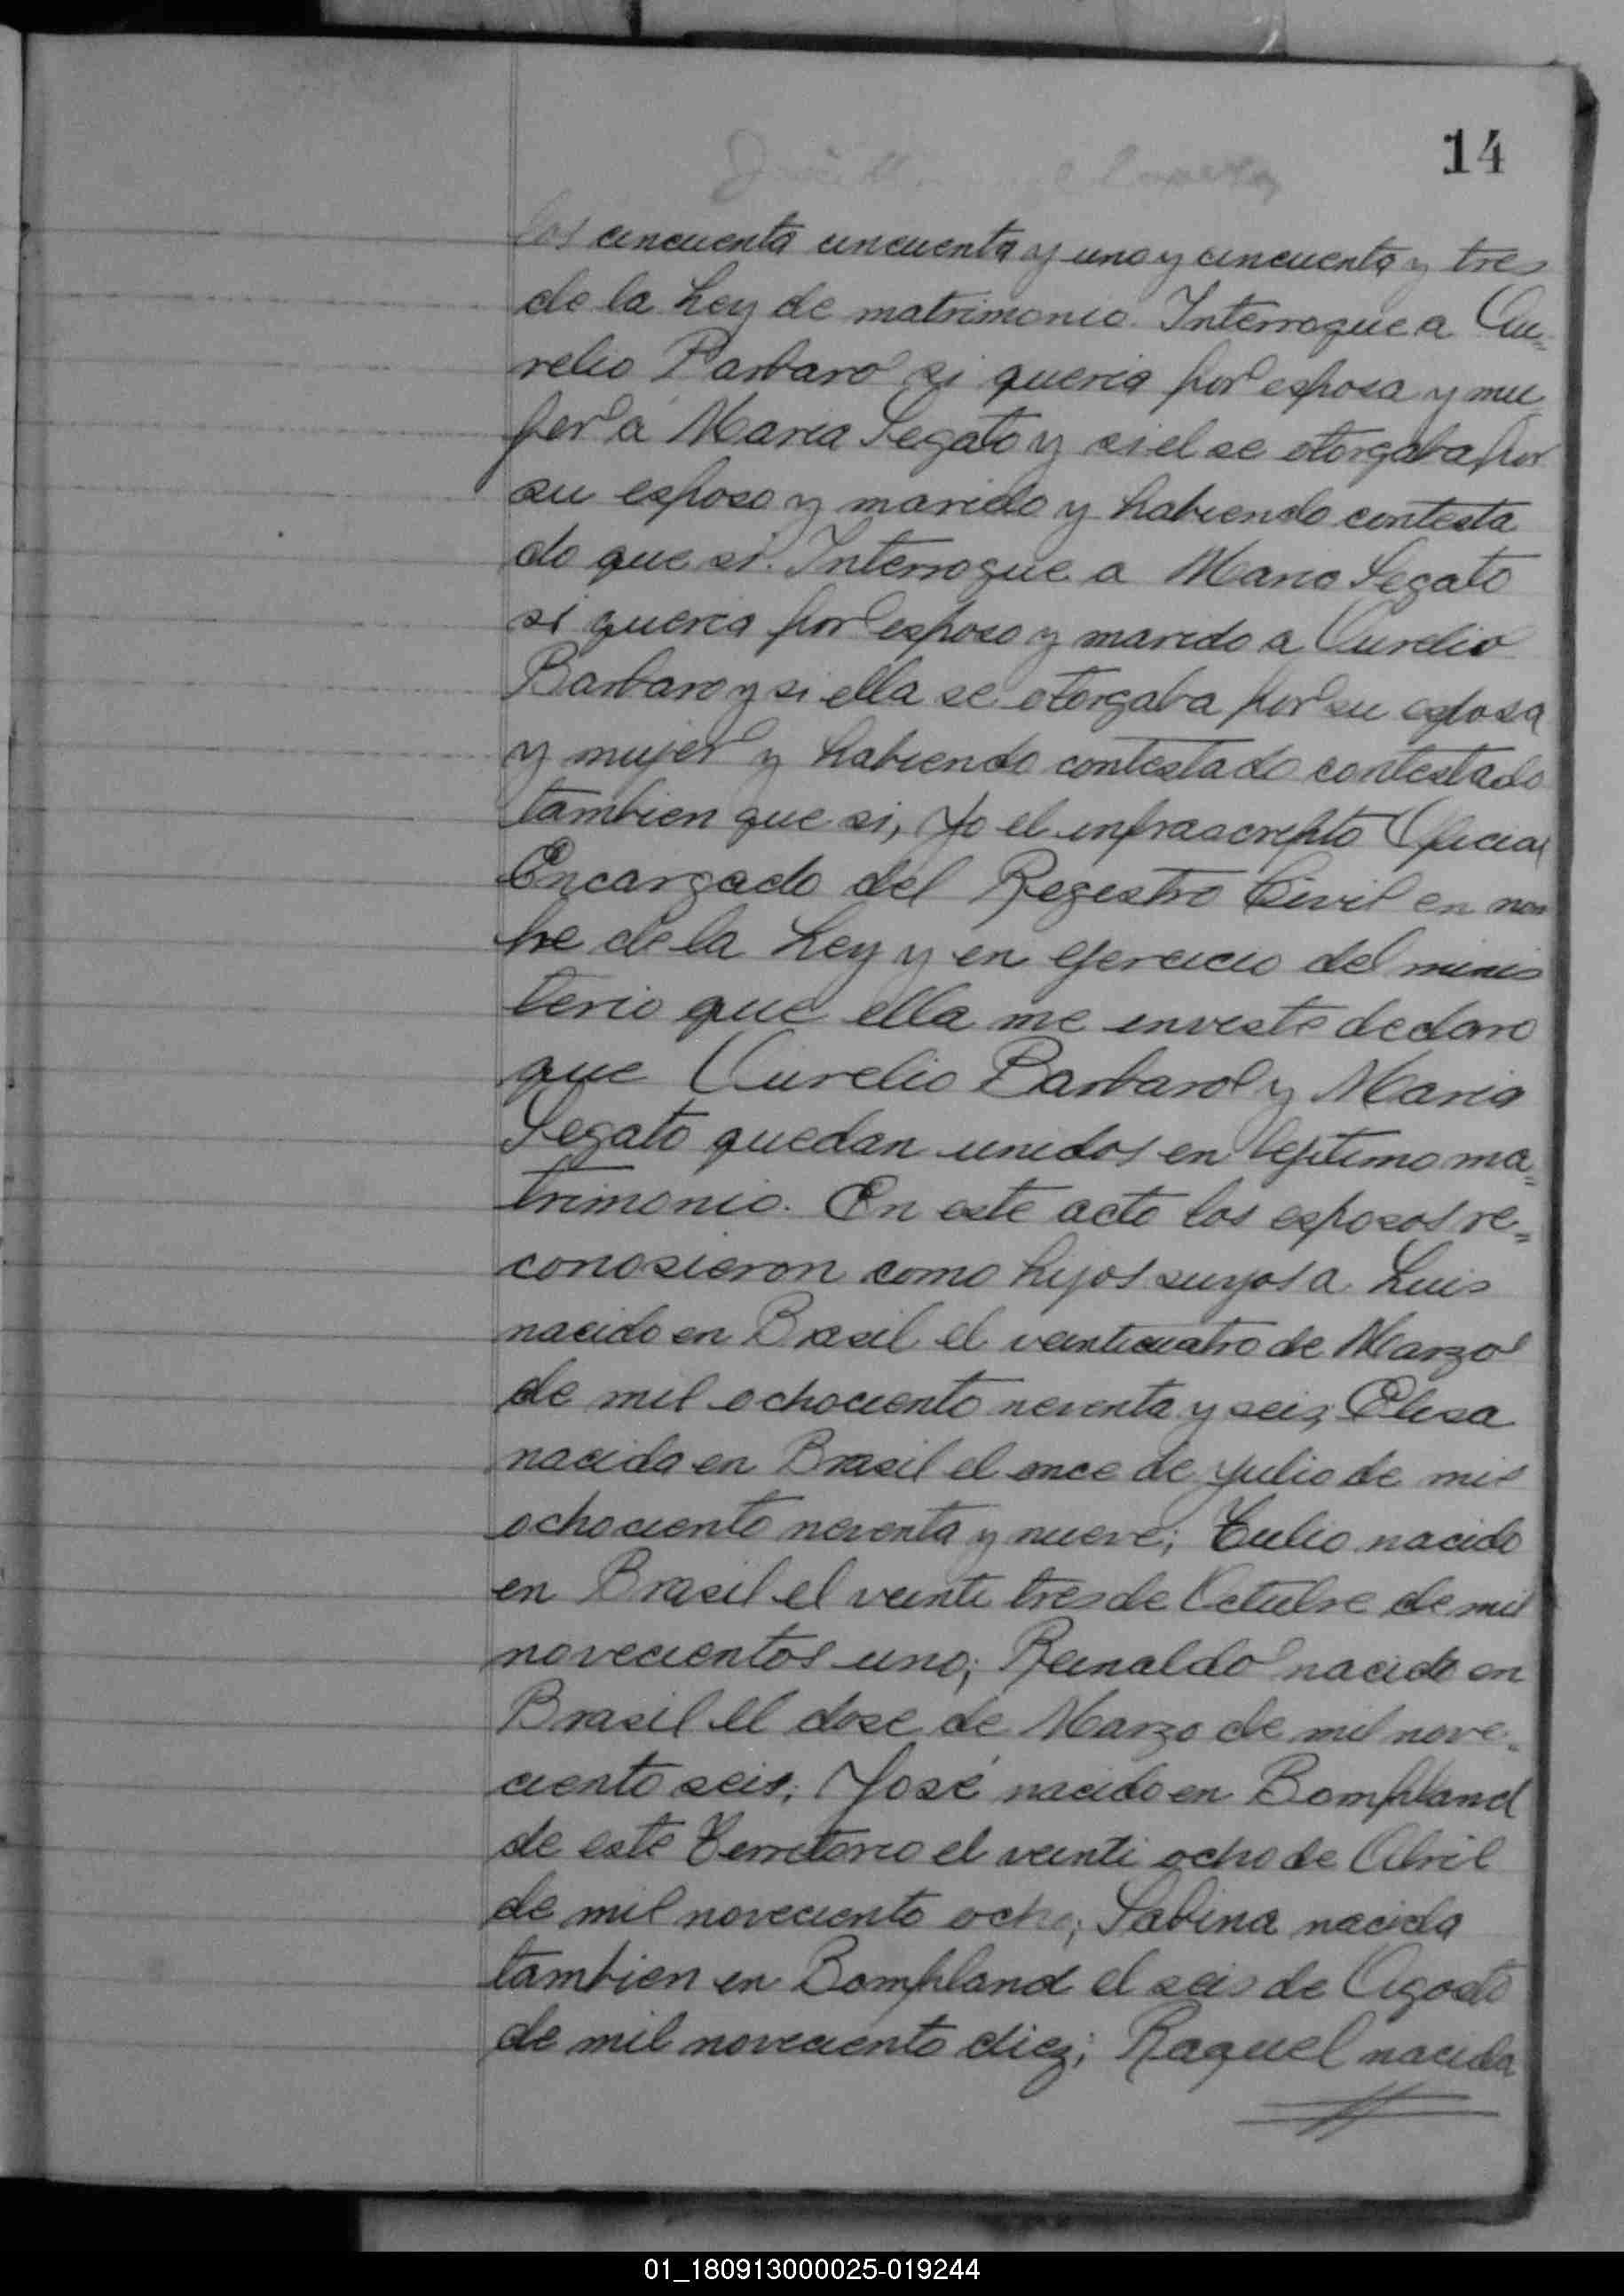 14
los cincuenta cincuenta y uno y cincuenta y tres
de la Ley de matrimonio. Interrogue a Au=
relio Barbaro si queria por esposa y mu
jer a Maria Segato y si el se otorgaba por
su esposo y marido y habiendo contesta
do que si. Interrogue a Maria Segato
si queria por esposo y marido a Aurelio
Barbaro y si ella se otorgaba por su esposa
y mujer y habiendo contestado contestado
tambien que si, Yo el infrascripto Oficial
Encargado del Registro Civil en nom
bre de la Ley y en ejercicio del minis
terio que ella me inviste declaro
que Aurelio Barbaro y Maria
Segato quedan unidos en lejitimo ma=
trimonio. En este acto los esposos re=
conosieron como hijos suyos a Luis
nacido en Brasil el veinticuatro de Marzo
de mil ochociento noventa y seis; Elisa
nacida en Brasil el once de Julio de mil
ochociento noventa y nueve; Tulio nacido
en Brasil el veinti tres de Octubre de mil
novecientos uno; Reinaldo nacido en
Brasil el dose de Marzo de mil nove=
ciento seis; José nacido en Bompland
de este Territorio el veinti ocho de Abril
de mil noveciento ocho; Sabina nacida
tambien en Bompland el seis de Agosto
de mil noveciento diez; Raquel nacida
01_180913000025-019244